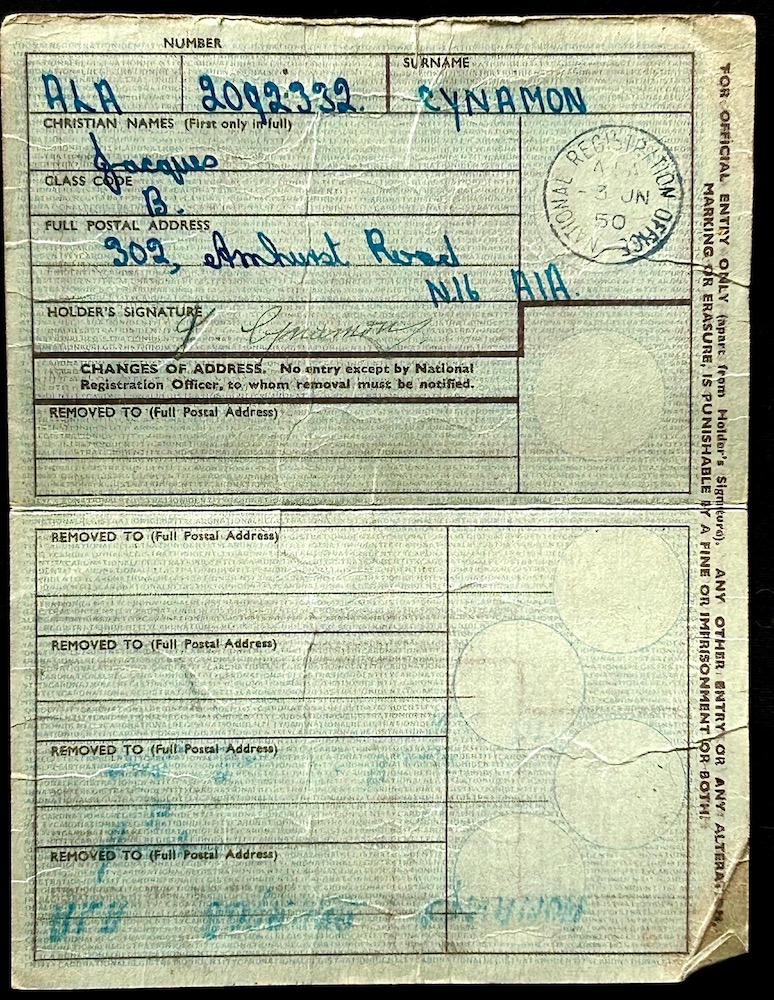 NUMBER
SURNAME
ALA 2092332. CYNAMON
CHRISTIAN NAMES (First only in full)
Jacques
CLASS CODE
B.
FULL POSTAL ADDRESS
302, Amhurst Road
N.16 AIA.
HOLDER'S SIGNATURE
J Cynamon
NATIONAL REGISTRATION OFFICE
3 JN
50
CHANGES OF ADDRESS. No entry except by National
Registration Officer, to whom removal must be notified.
REMOVED TO (Full Postal Address)
REMOVED TO (Full Postal Address)
REMOVED TO (Full Postal Address)
REMOVED TO (Full Postal Address)
REMOVED TO (Full Postal Address)
FOR OFFICIAL ENTRY ONLY (apart from Holder's Signature). ANY OTHER ENTRY OR ANY ALTERATION,
MARKING OR ERASURE, IS PUNISHABLE BY A FINE OR IMPRISONMENT OR BOTH.